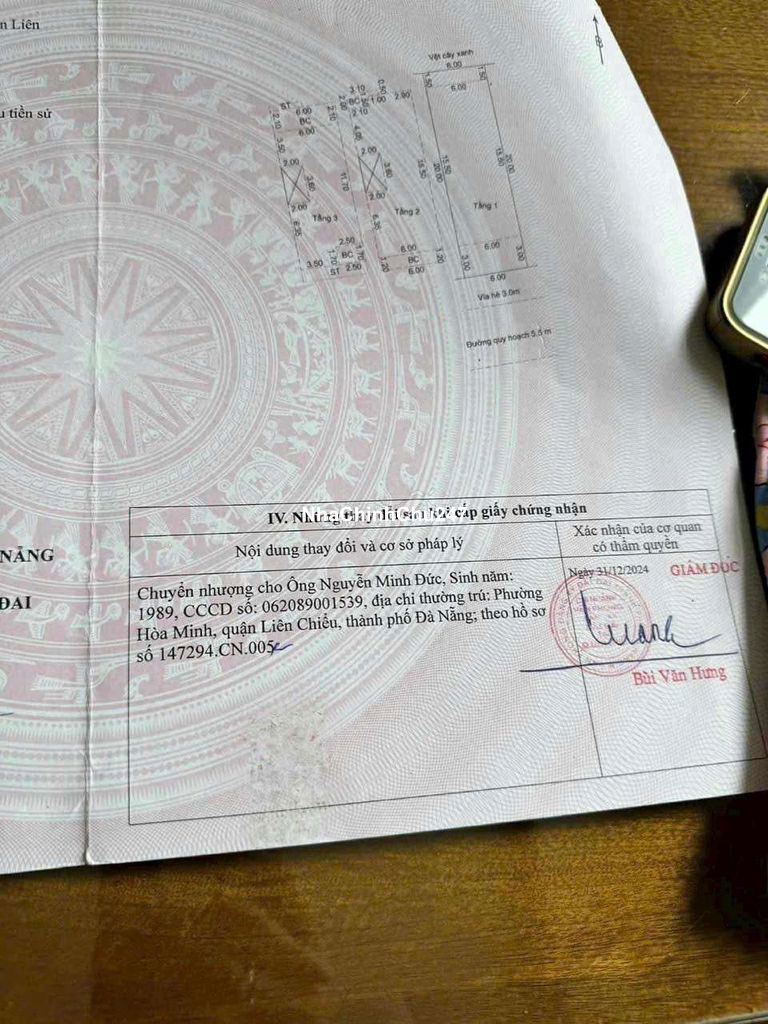 n Liên
u tiền sử
Vệt cây xanh
6.00
1.50
1.50
6.00
15.50
20.00
15.50
20.00
Tầng 1
6.00
3.00
3.00
6.00
Vỉa hè 3.0m
Đường quy hoạch 5.5 m
3.10
0.50
2.00
BC
1.00
2.00
2.10
4.05
2.00
3.60
2.00
15.50
6.35
Tầng 2
6.00
1.20
BC
1.20
6.00
ST
6.00
2.10
BC
2.10
6.00
3.50
2.00
3.60
11.70
2.00
6.35
Tầng 3
2.50
1.70
BC
1.70
3.50
ST
2.50
NẴNG
ĐAI
IV. Những thay đổi sau khi cấp giấy chứng nhận
Nội dung thay đổi và cơ sở pháp lý
Xác nhận của cơ quan
có thẩm quyền
Chuyển nhượng cho Ông Nguyễn Minh Đức, Sinh năm:
1989, CCCD số: 062089001539, địa chỉ thường trú: Phường
Hòa Minh, quận Liên Chiểu, thành phố Đà Nẵng; theo hồ sơ
số 147294.CN.005
Ngày 31/12/2024
GIÁM ĐỐC
Bùi Văn Hưng